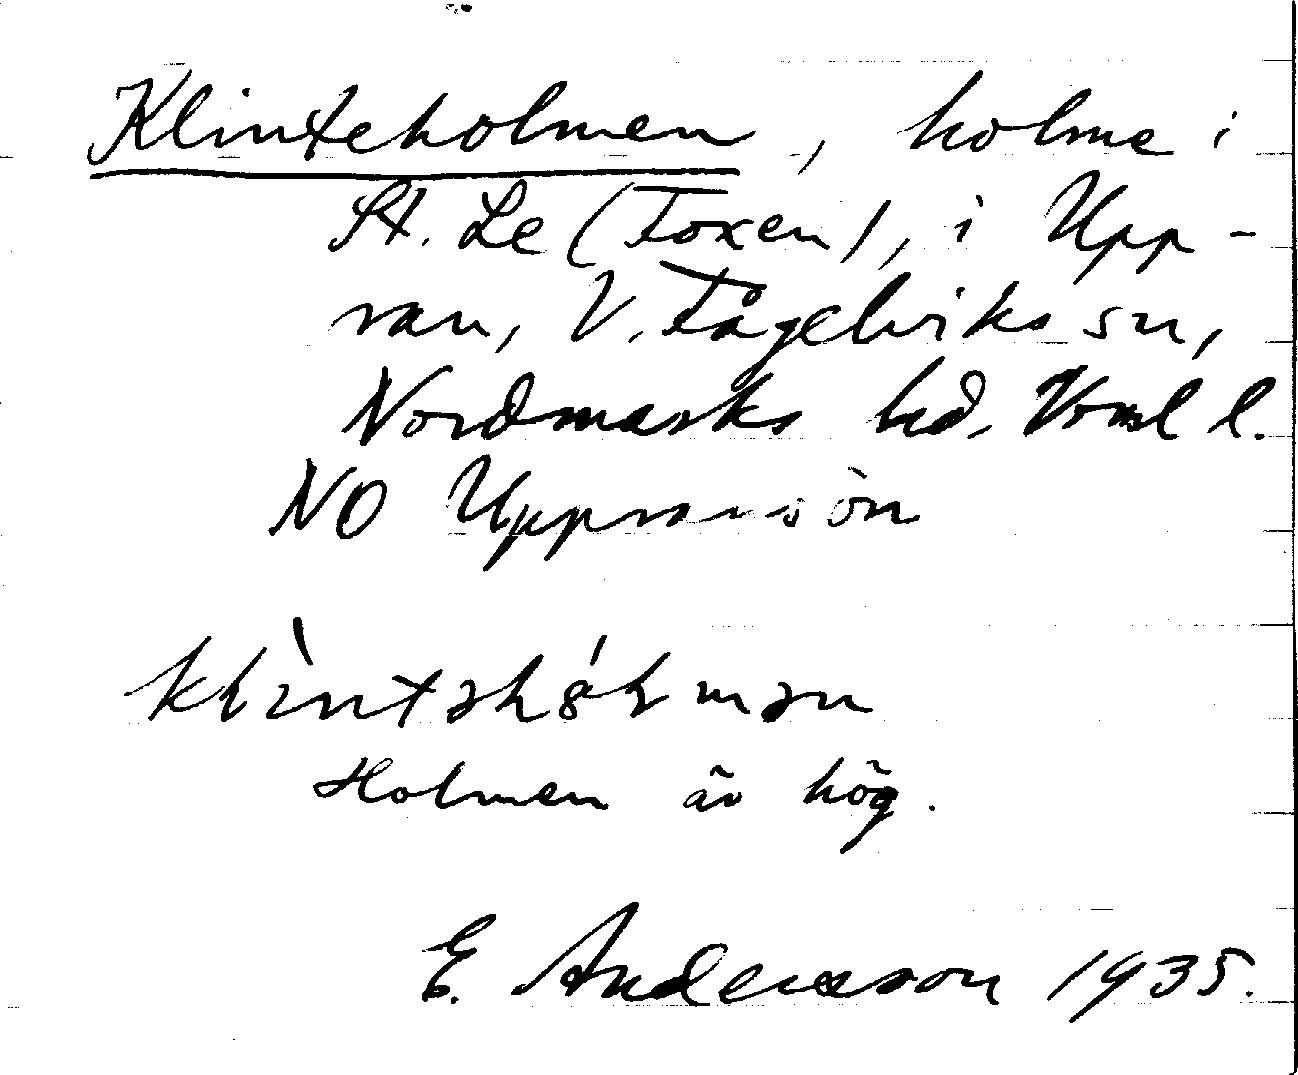 Klinteholmen, holme i
St. Le (Foxen), i Upp-
ran, V. Fågelviks sn,
Nordmarks hd, Vrml l.
NO Uppransön
Holmen är hög.
E. Andersson 1935.